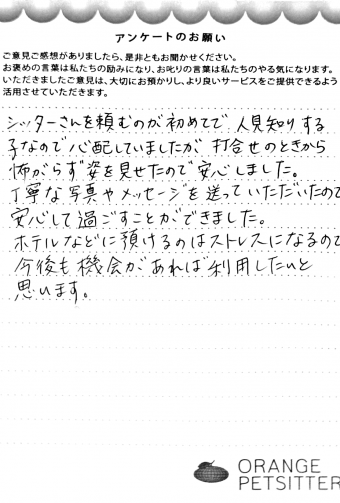 アンケートのお願い
ご意見ご感想がありましたら、是非ともお聞かせください。
お褒めの言葉は私たちの励みになり、お叱りの言葉は私たちのやる気になります。
いただきましたご意見は、大切にお預かりし、より良いサービスをご提供できるよう
活用させていただきます。
シッターさんを頼むのが初めてで 人見知りする
子なので心配していましたが 打合せのときから
怖がらず姿を見せたので安心しました。
丁寧な写真やメッセージを送っていただいたので
安心して過ごすことができました。
ホテルなどに預けるのはストレスになるので
今後も機会があれば利用したいと
思います。
ORANGE
PETSITTER